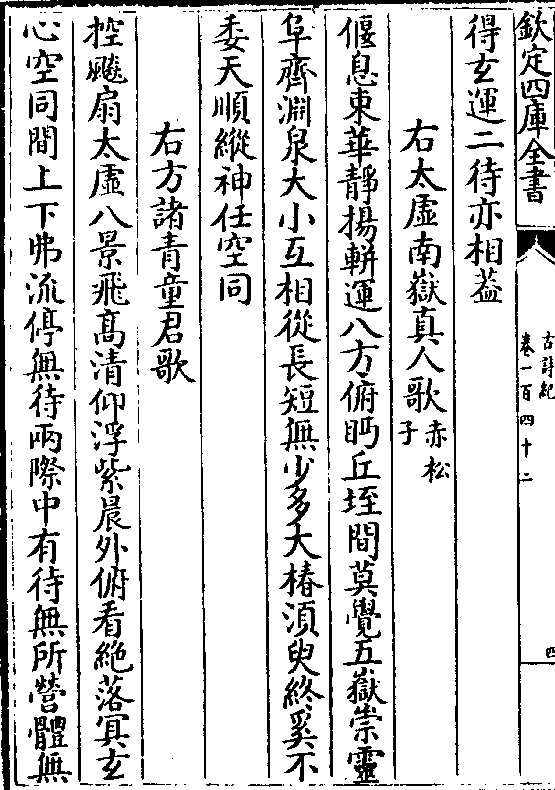 欽定四庫全書
古詩紀
卷一百四十二
四
得玄運二待亦相葢
右太虛南嶽真人歌赤松子
偃息東華靜揚輧運八方俯眄丘垤間莫覺五嶽崇靈
阜齊淵泉大小互相從長短無少多大椿須臾終奚不
委天順縱神任空同
右方諸青童君歌
控飈扇太虛八景飛高清仰浮紫晨外俯看絶落冥玄
心空同間上下弗流停無待兩際中有待無所營體無